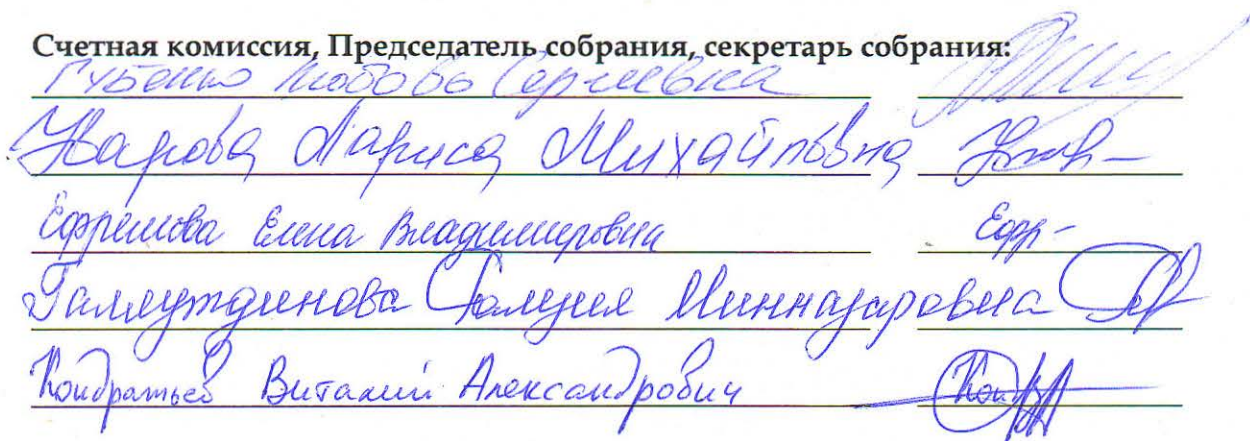 Счетная комиссия, Председатель собрания, секретарь собрания:
Губенко Любовь Сергеевна
Уварова Лариса Михайловна
Ефремова Елена Владимировна Ефр-
Галлямутдинова Миннazаровна
Кондратьев Виталий Александрович Кон